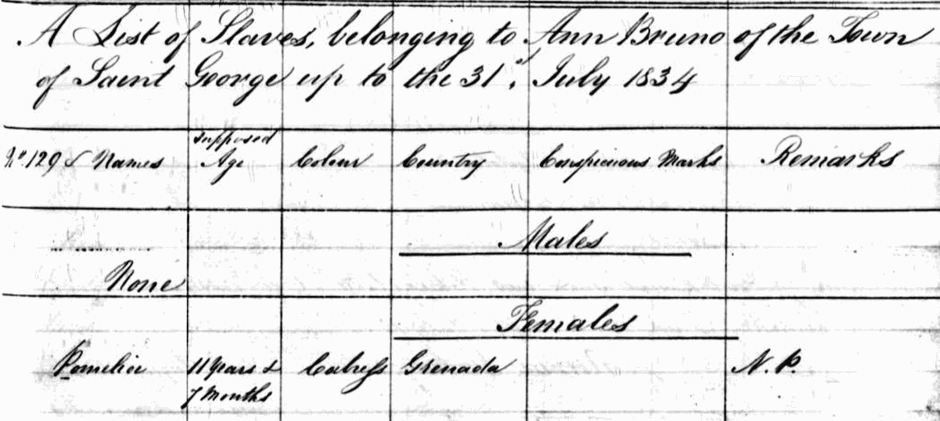 A List of Slaves, belonging to Ann Bruno of the Town
of Saint George up to the 31st, July 1834
No. 129 & Names supposed Age Colour Country Conspicuous Marks Remarks
Males
None
Females
Pamelia 11 Years & 7 Months Cabress Grenada N. P.